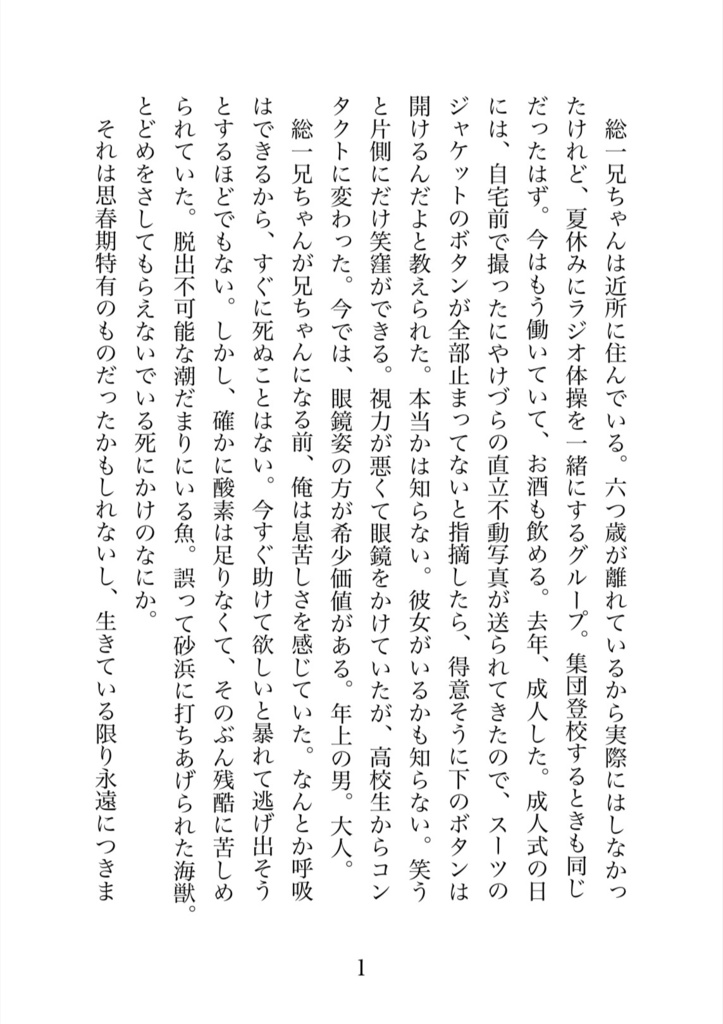 総一兄ちゃんは近所に住んでいる。六つ歳が離れているから実際にはしなかっ
たけれど、夏休みにラジオ体操を一緒にするグループ。集団登校するときも同じ
だったはず。今はもう働いていて、お酒も飲める。去年、成人した。成人式の日
には、自宅前で撮ったにやけづらの直立不動写真が送られてきたので、スーツの
ジャケットのボタンが全部止まってないと指摘したら、得意そうに下のボタンは
開けるんだよと教えられた。本当かは知らない。彼女がいるかも知らない。笑う
と片側にだけ笑窪ができる。視力が悪くて眼鏡をかけていたが、高校生からコン
タクトに変わった。今では、眼鏡姿の方が希少価値がある。年上の男。大人。
総一兄ちゃんが兄ちゃんになる前、俺は息苦しさを感じていた。なんとか呼吸
はできるから、すぐに死ぬことはない。今すぐ助けて欲しいと暴れて逃げ出そう
とするほどでもない。しかし、確かに酸素は足りなくて、そのぶん残酷に苦しめ
られていた。脱出不可能な潮だまりにいる魚。誤って砂浜に打ちあげられた海獣。
とどめをさしてもらえないでいる死にかけのなにか。
それは思春期特有のものだったかもしれないし、生きている限り永遠につきま
1